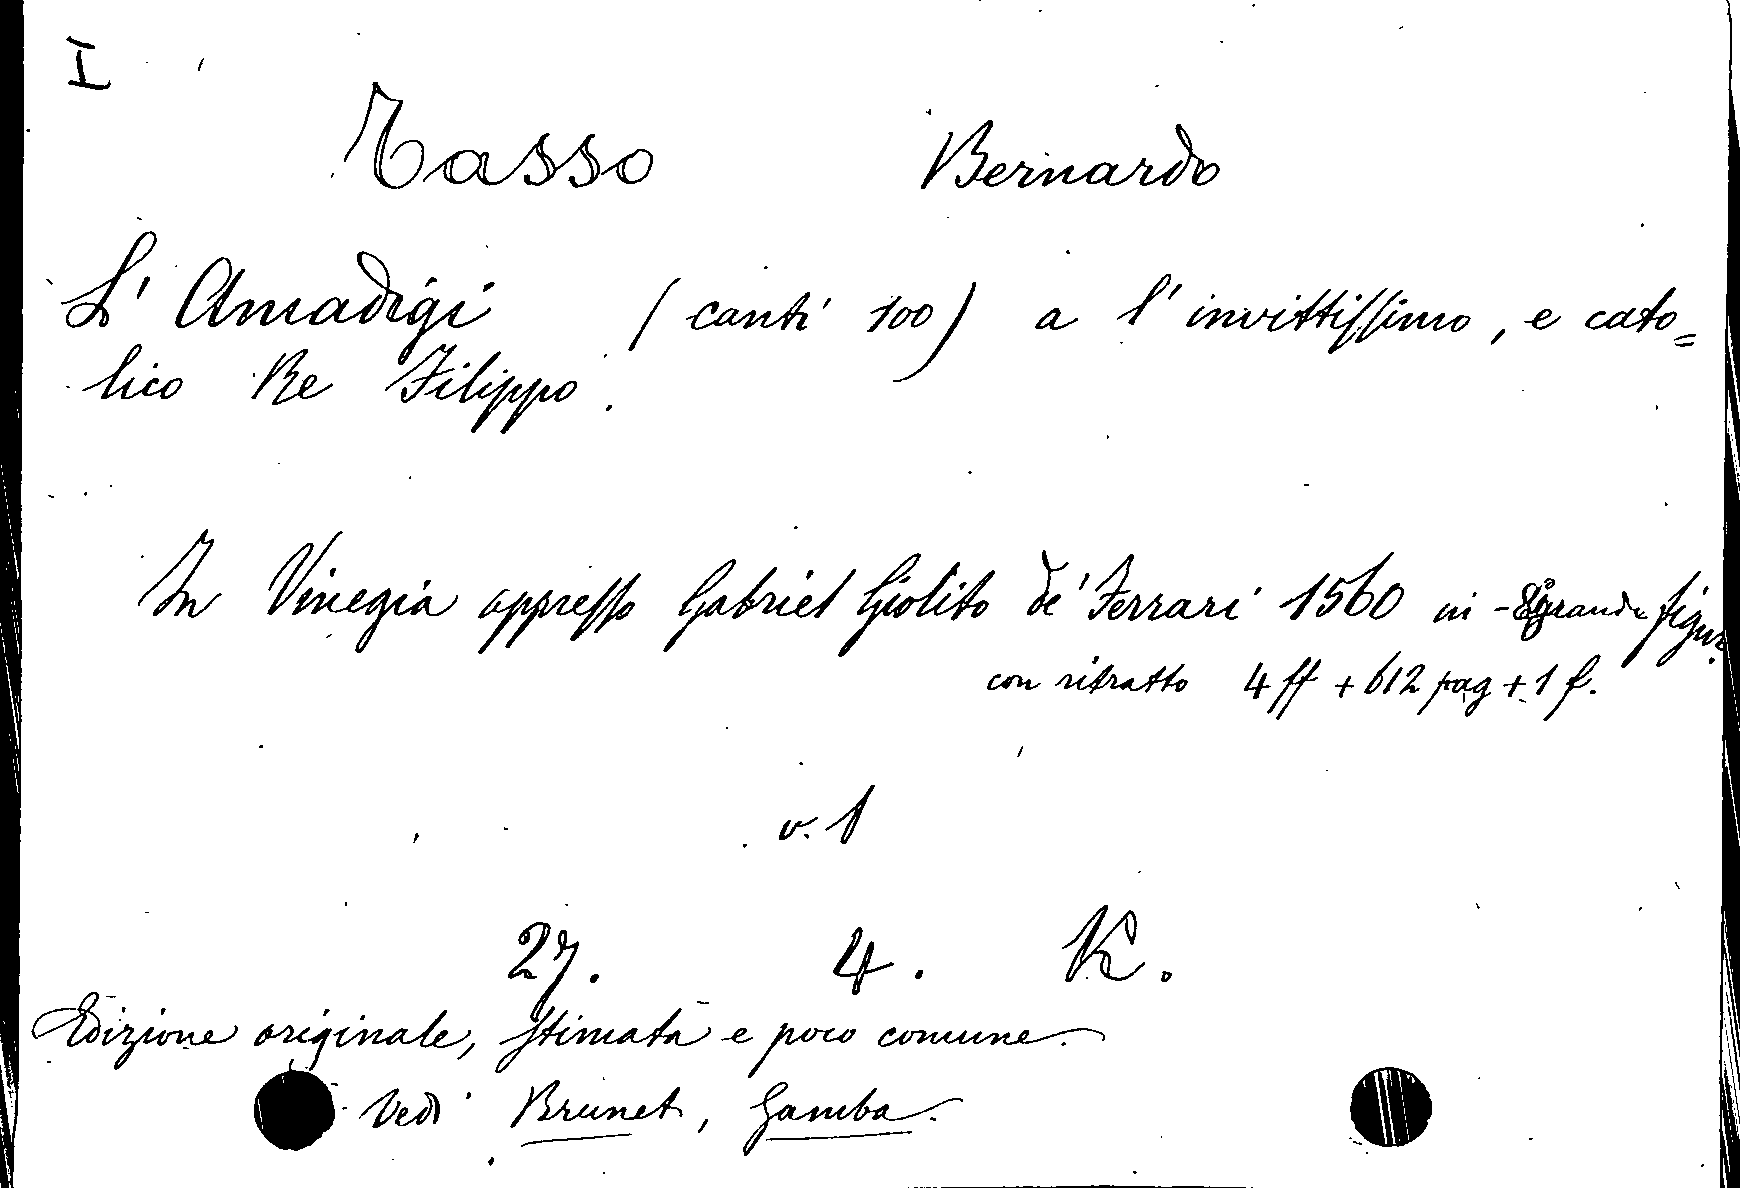 I
Tasso Bernardo
L' Amadigi (canti 100) a l' invittissimo, e cato=
lico Re Filippo.
In Vinegia appresso Gabriel Giolito de' Ferrari 1560 in - grande figur.
con ritratto 4 ff + 612 pag + 1 f.
v. 1
27. 4. K.
Edizione originale, stimata e poco comune.
Vedi Brunet, Gamba.